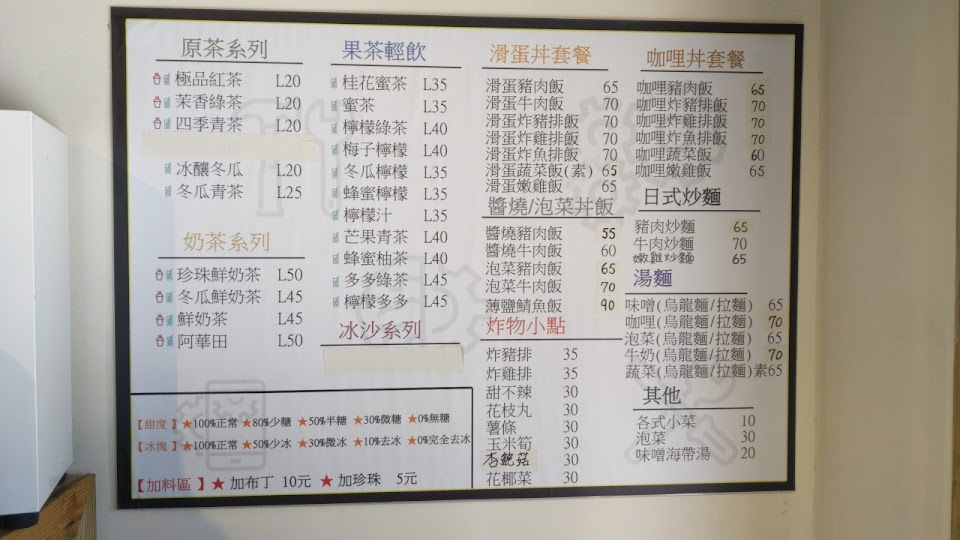 原茶系列
極品紅茶 L20
茉香綠茶 L20
四季青茶 L20
冰釀冬瓜 L20
冬瓜青茶 L25
奶茶系列
珍珠鮮奶茶 L50
冬瓜鮮奶茶 L45
鮮奶茶 L45
阿華田 L50
果茶輕飲
桂花蜜茶 L35
蜜茶 L35
檸檬綠茶 L40
梅子檸檬 L40
冬瓜檸檬 L35
蜂蜜檸檬 L35
檸檬汁 L35
芒果青茶 L40
蜂蜜柚茶 L40
多多綠茶 L45
檸檬多多 L45
冰沙系列
【甜度】★100%正常 ★80%少糖 ★50%半糖 ★30%微糖 ★0%無糖
【冰塊】★100%正常 ★50%少冰 ★30%微冰 ★10%去冰 ★0%完全去冰
【加料區】★ 加布丁 10元 ★ 加珍珠 5元
滑蛋丼套餐
滑蛋豬肉飯 65
滑蛋牛肉飯 70
滑蛋炸豬排飯 70
滑蛋炸雞排飯 70
滑蛋炸魚排飯 70
滑蛋蔬菜飯(素) 65
滑蛋嫩雞飯 65
醬燒/泡菜丼飯
醬燒豬肉飯 55
醬燒牛肉飯 60
泡菜豬肉飯 65
泡菜牛肉飯 70
薄鹽鯖魚飯 90
炸物小點
炸豬排 35
炸雞排 35
甜不辣 30
花枝丸 30
薯條 30
玉米筍 30
杏鮑菇 30
花椰菜 30
咖哩丼套餐
咖哩豬肉飯 65
咖哩炸豬排飯 70
咖哩炸雞排飯 70
咖哩炸魚排飯 70
咖哩蔬菜飯 60
咖哩嫩雞飯 65
日式炒麵
豬肉炒麵 65
牛肉炒麵 70
嫩雞炒麵 65
湯麵
味噌(烏龍麵/拉麵) 65
咖哩(烏龍麵/拉麵) 70
泡菜(烏龍麵/拉麵) 65
牛奶(烏龍麵/拉麵) 70
蔬菜(烏龍麵/拉麵)素65
其他
各式小菜 10
泡菜 30
味噌海帶湯 20